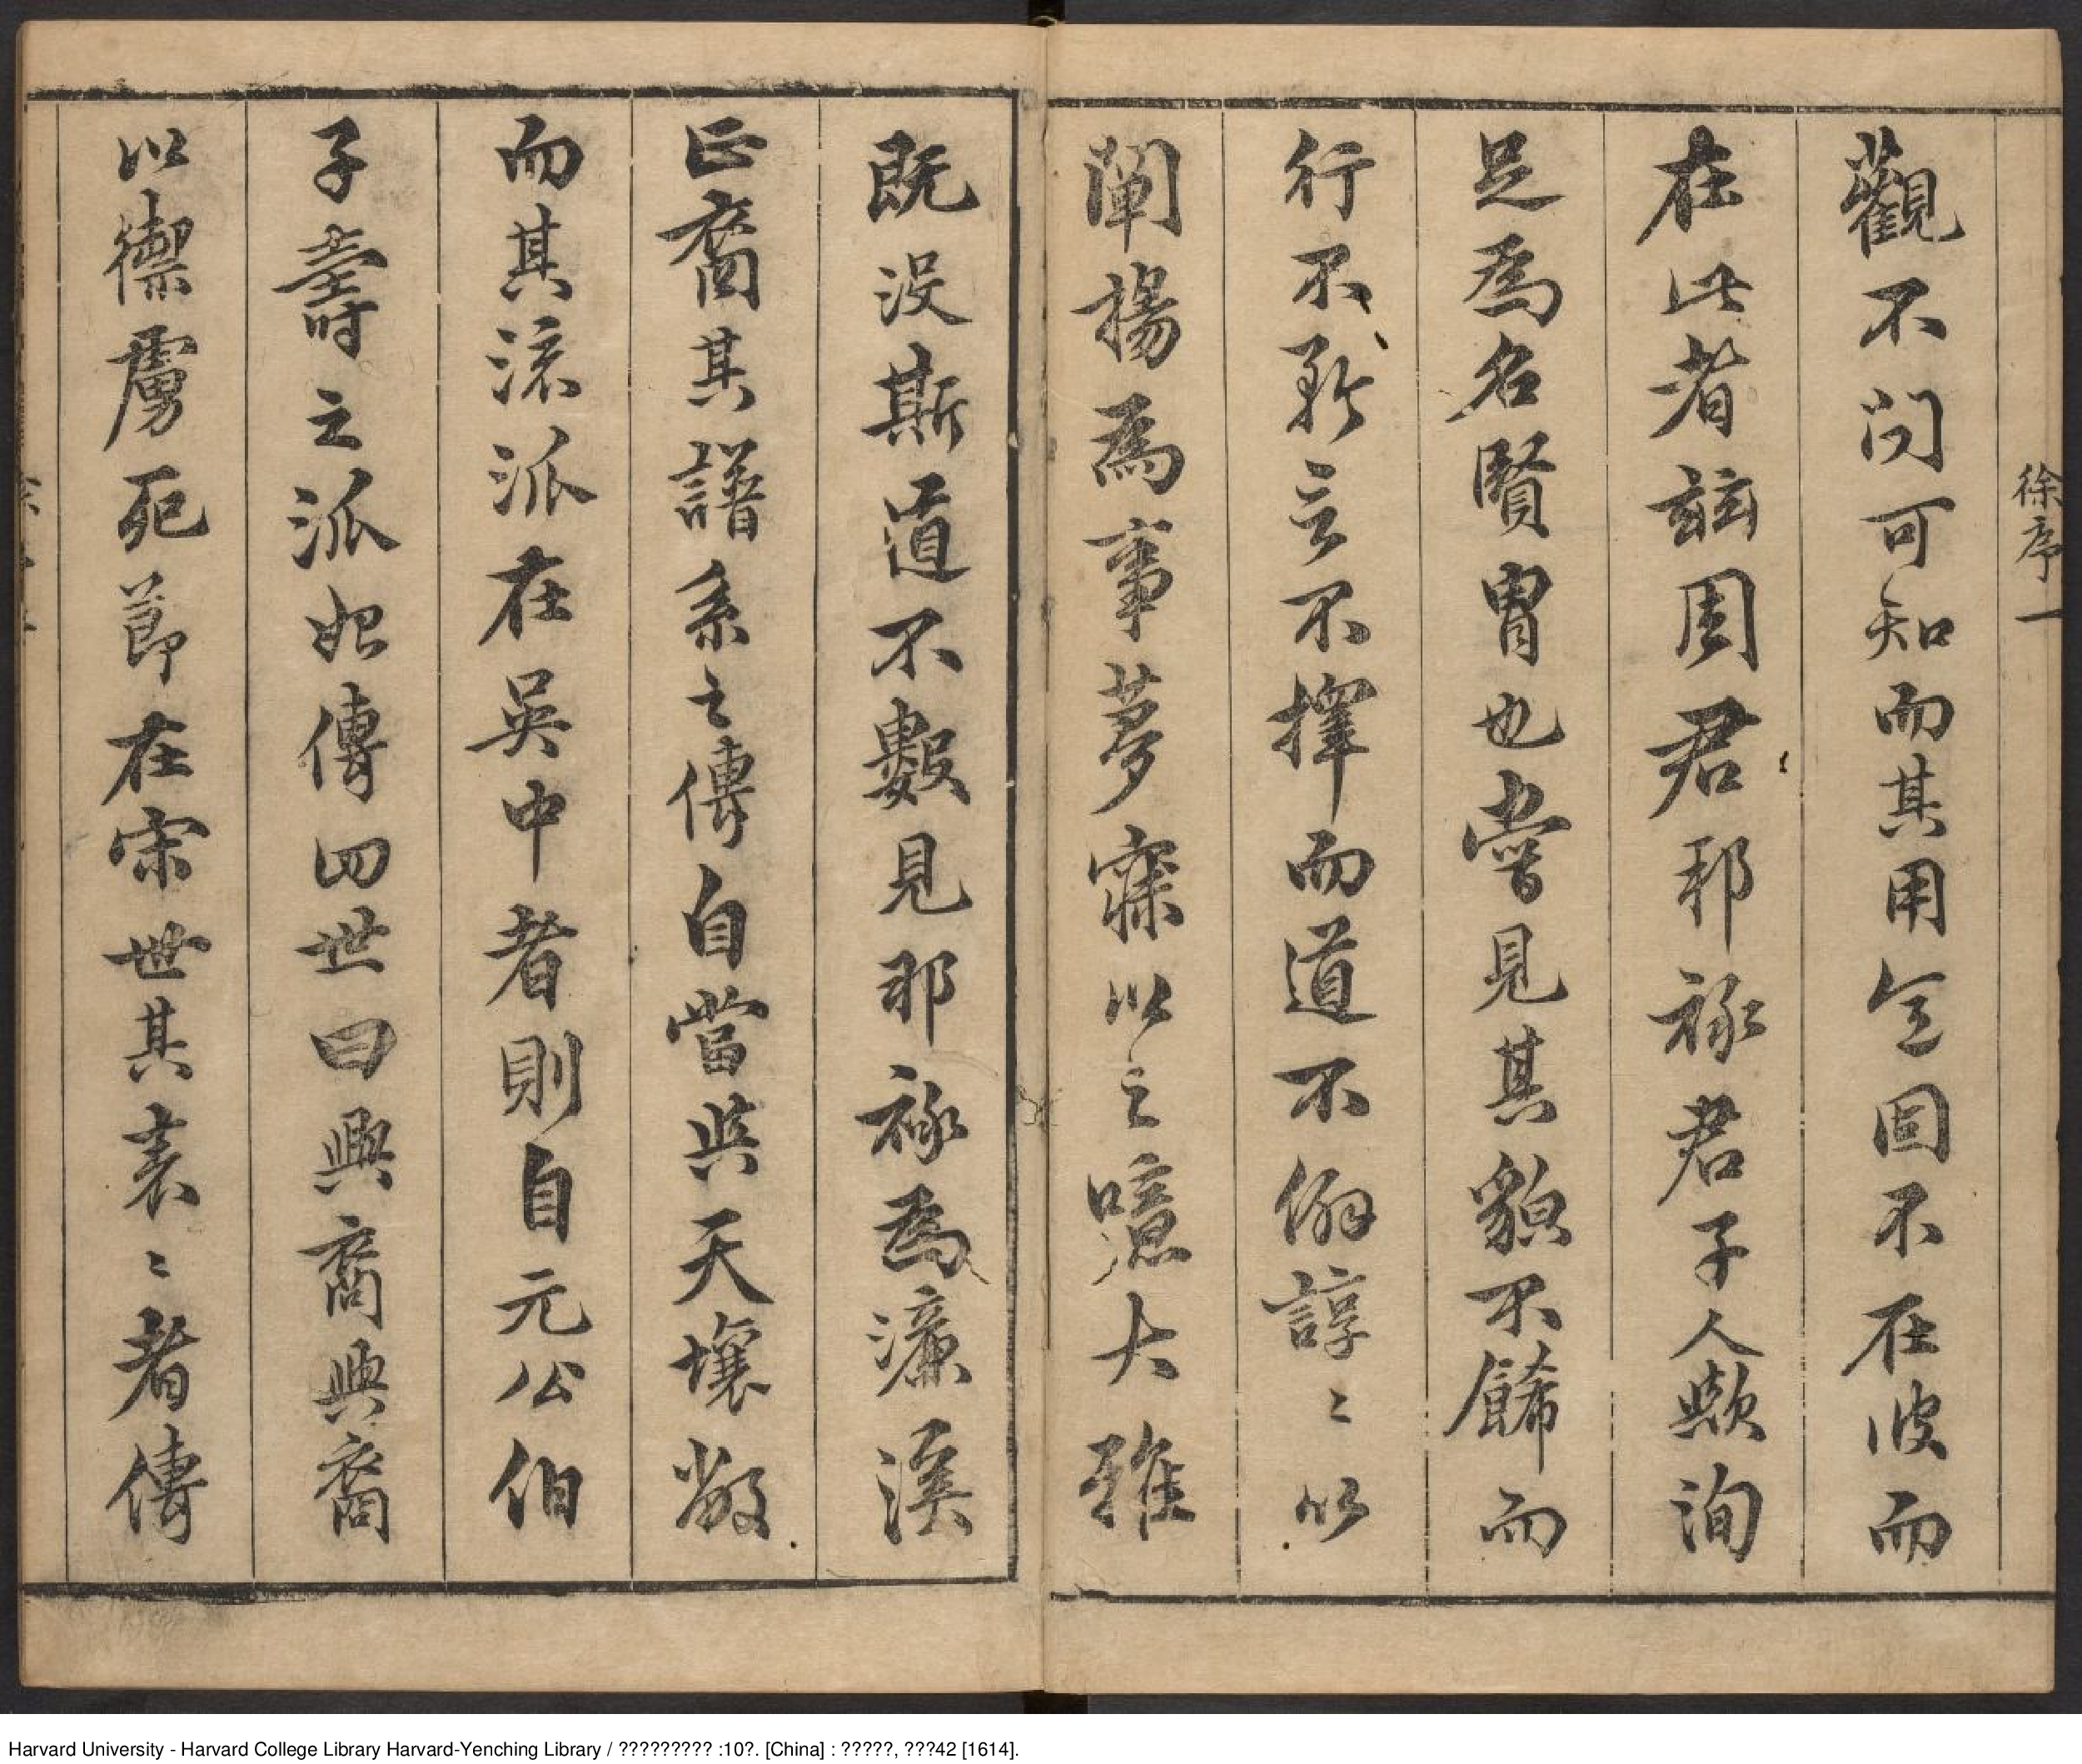 徐序一
觀不问可知而其用□固不在彼而
在此者玆周君邪祿君子人歟洵
足為名賢胄也嘗見其貌不餙而
行不矜言不擇而道不俗諄〻以
闡揚為事夢寐以之噫大雅
既没斯道不數見邪祿為濂溪
正裔其譜系之傳自當与天壤敝
而其滚派在吳中者則自元公伯
子壽之派始傳四世曰興裔興裔
以禦虜死莭在宋世其表〻者傳
Harvard University - Harvard College Library Harvard-Yenching Library / ????????? :10?. [China] : ?????, ???42 [1614].